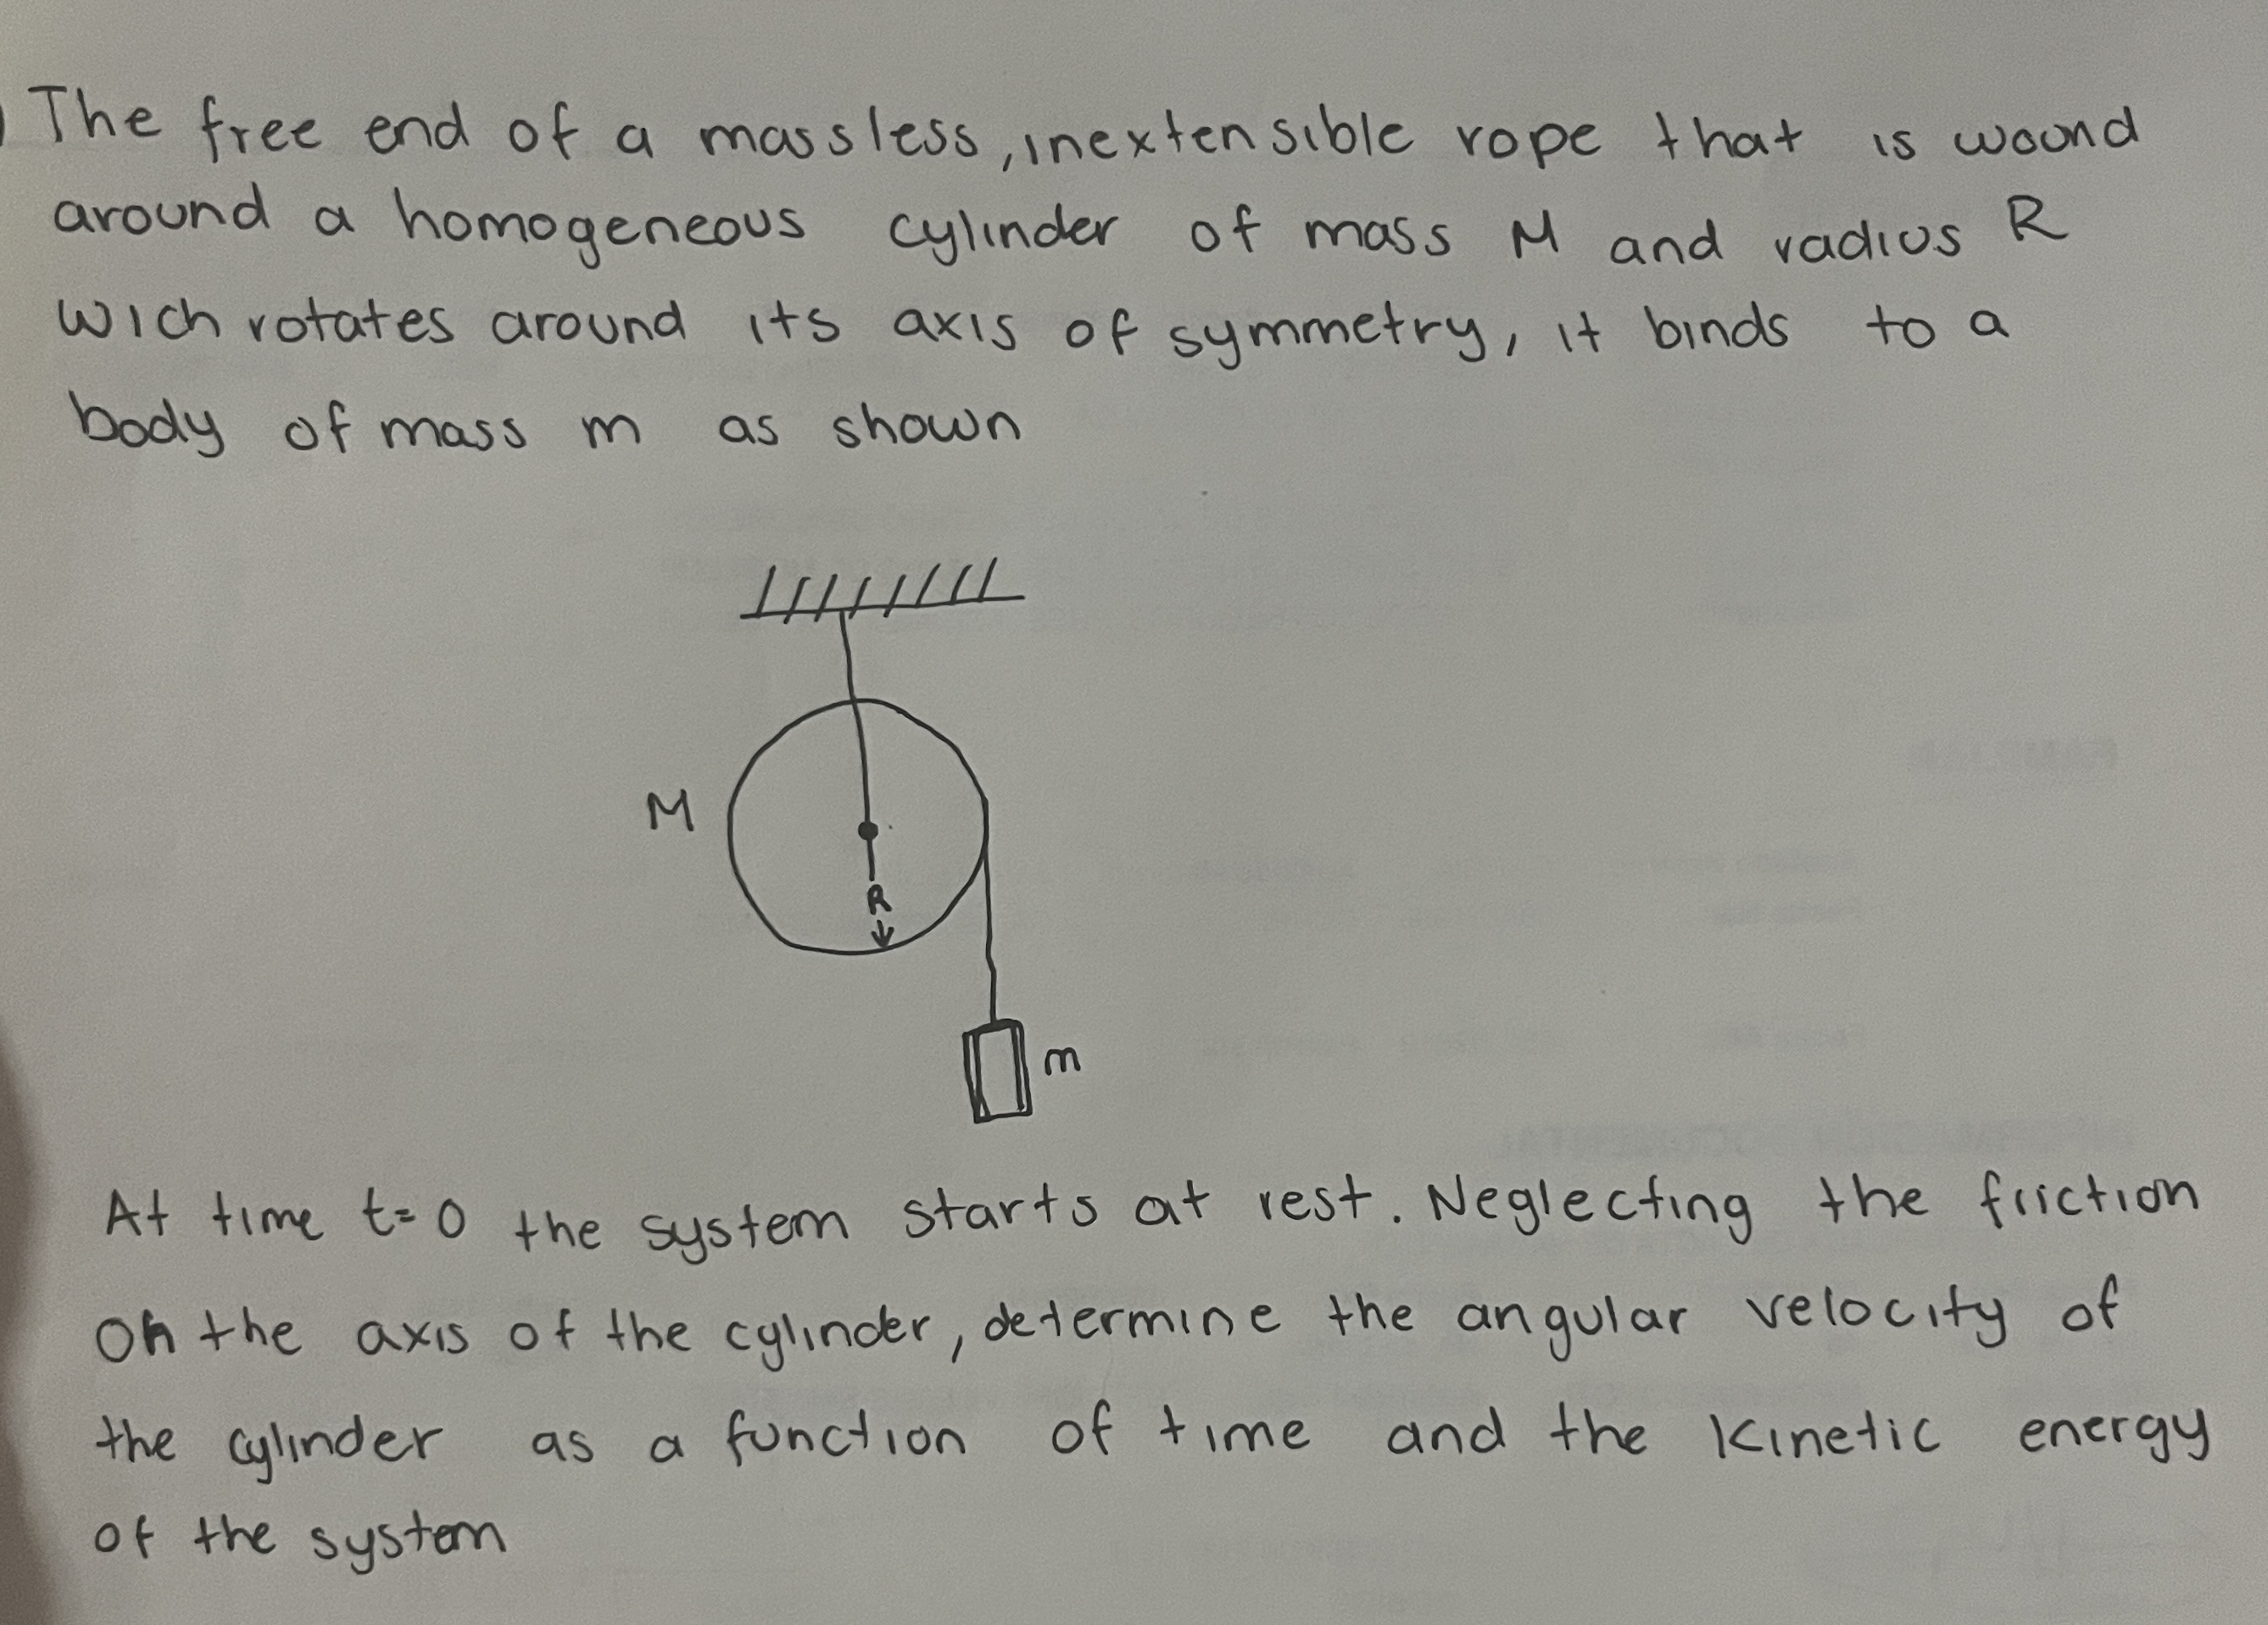 The free end of a massless, inextensible rope that is wound
around a homogeneous cylinder of mass M and radius R
wich rotates around its axis of symmetry, it binds to a
body of mass m as shown
M
R
m
At time t=0 the system starts at rest. Neglecting the friction
on the axis of the cylinder, determine the angular velocity of
the cylinder as a function of time and the kinetic energy
of the system